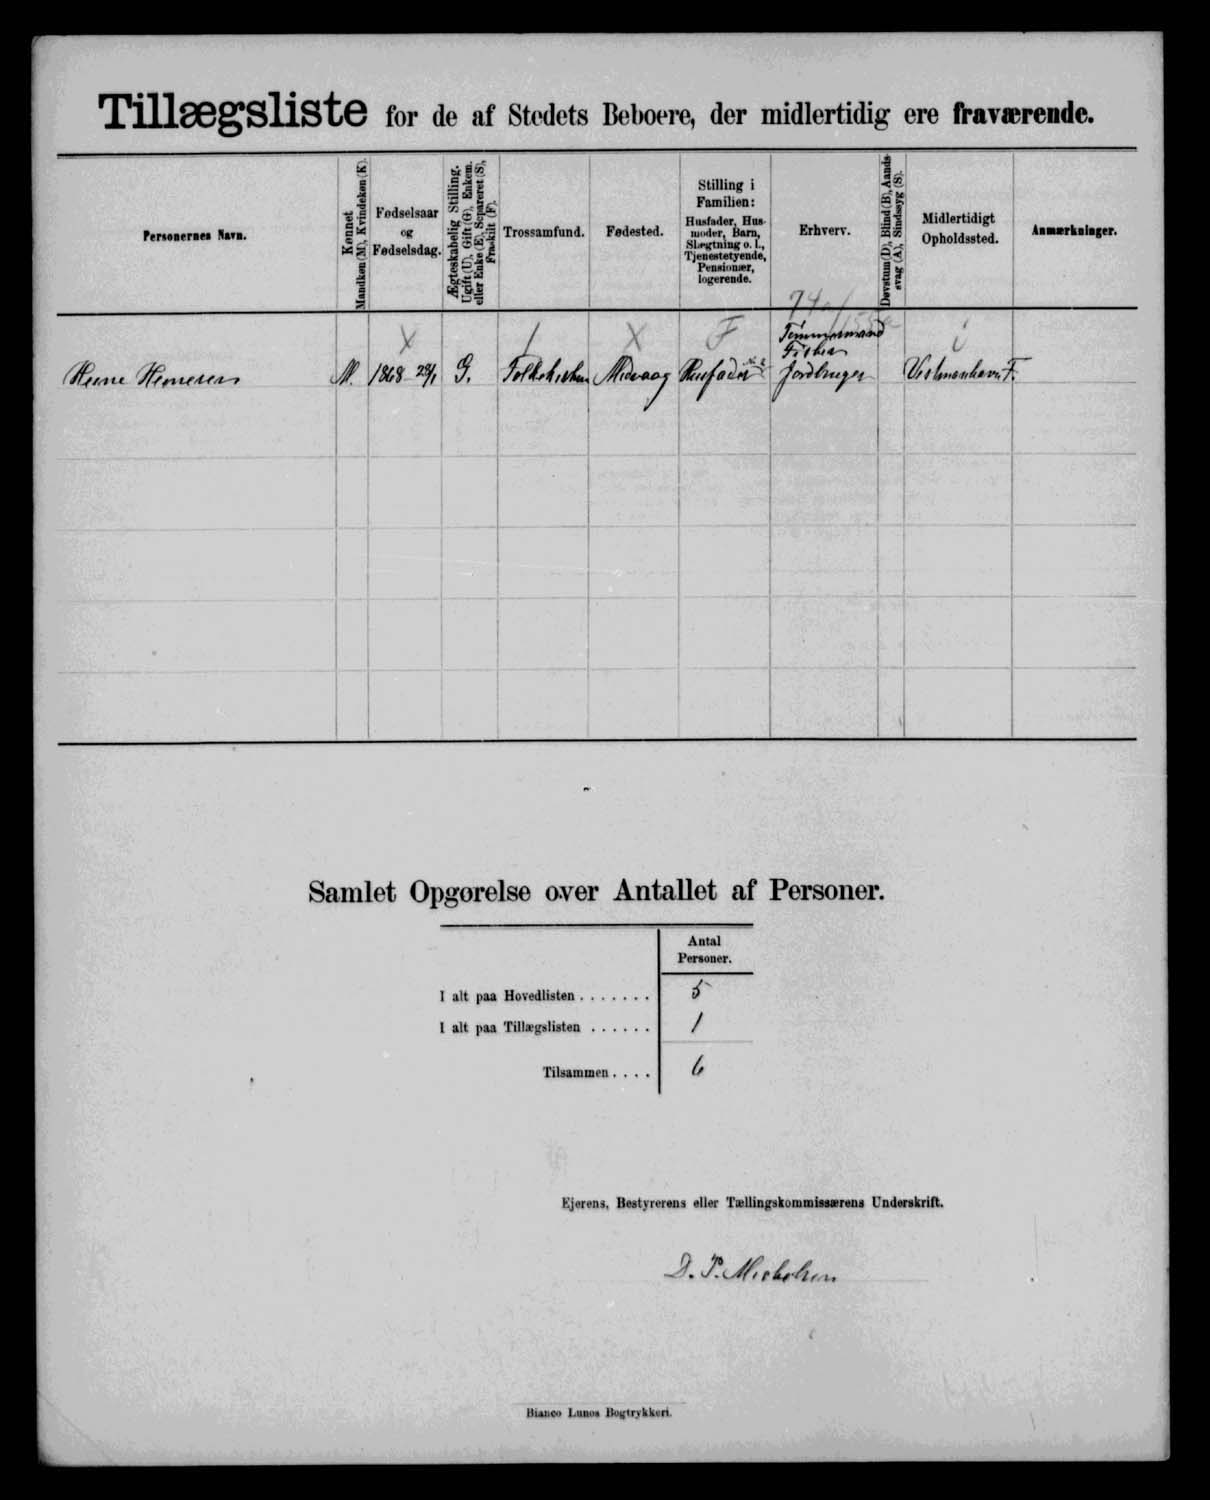 Tillægsliste for de af Stedets Beboere, der midlertidig ere fraværende.
Personernes Navn.
Kønnet
Mandkøn (M), Kvindekøn (K).
Fødselsaar
og
Fødselsdag.
Ægteskabelig Stilling.
Ugift (U), Gift (G), Enkem.
eller Enke (E), Separeret (S),
Fraskilt (F).
Trossamfund.
Fødested.
Stilling i
Familien:
Husfader, Hus-
moder, Barn,
Slægtning o. l.,
Tjenestetyende,
Pensionær,
logerende.
Erhverv.
Døvstum (D), Blind (B), Aands-
svag (A), Sindssyg (S).
Midlertidigt
Opholdssted.
Anmærkninger.
X
X
F
Tømmermand
Fisker
M. 1868 28/1 G. Folkekirken Midvaag Husfader Jordbruger Vestmanhavn F.
Samlet Opgørelse over Antallet af Personer.
Antal
Personer.
I alt paa Hovedlisten ....... 5
I alt paa Tillægslisten ...... 1
Tilsammen.... 6
Ejerens, Bestyrerens eller Tællingskommissærens Underskrift.
D. P. Michelsen
Bianco Lunos Bogtrykkeri.